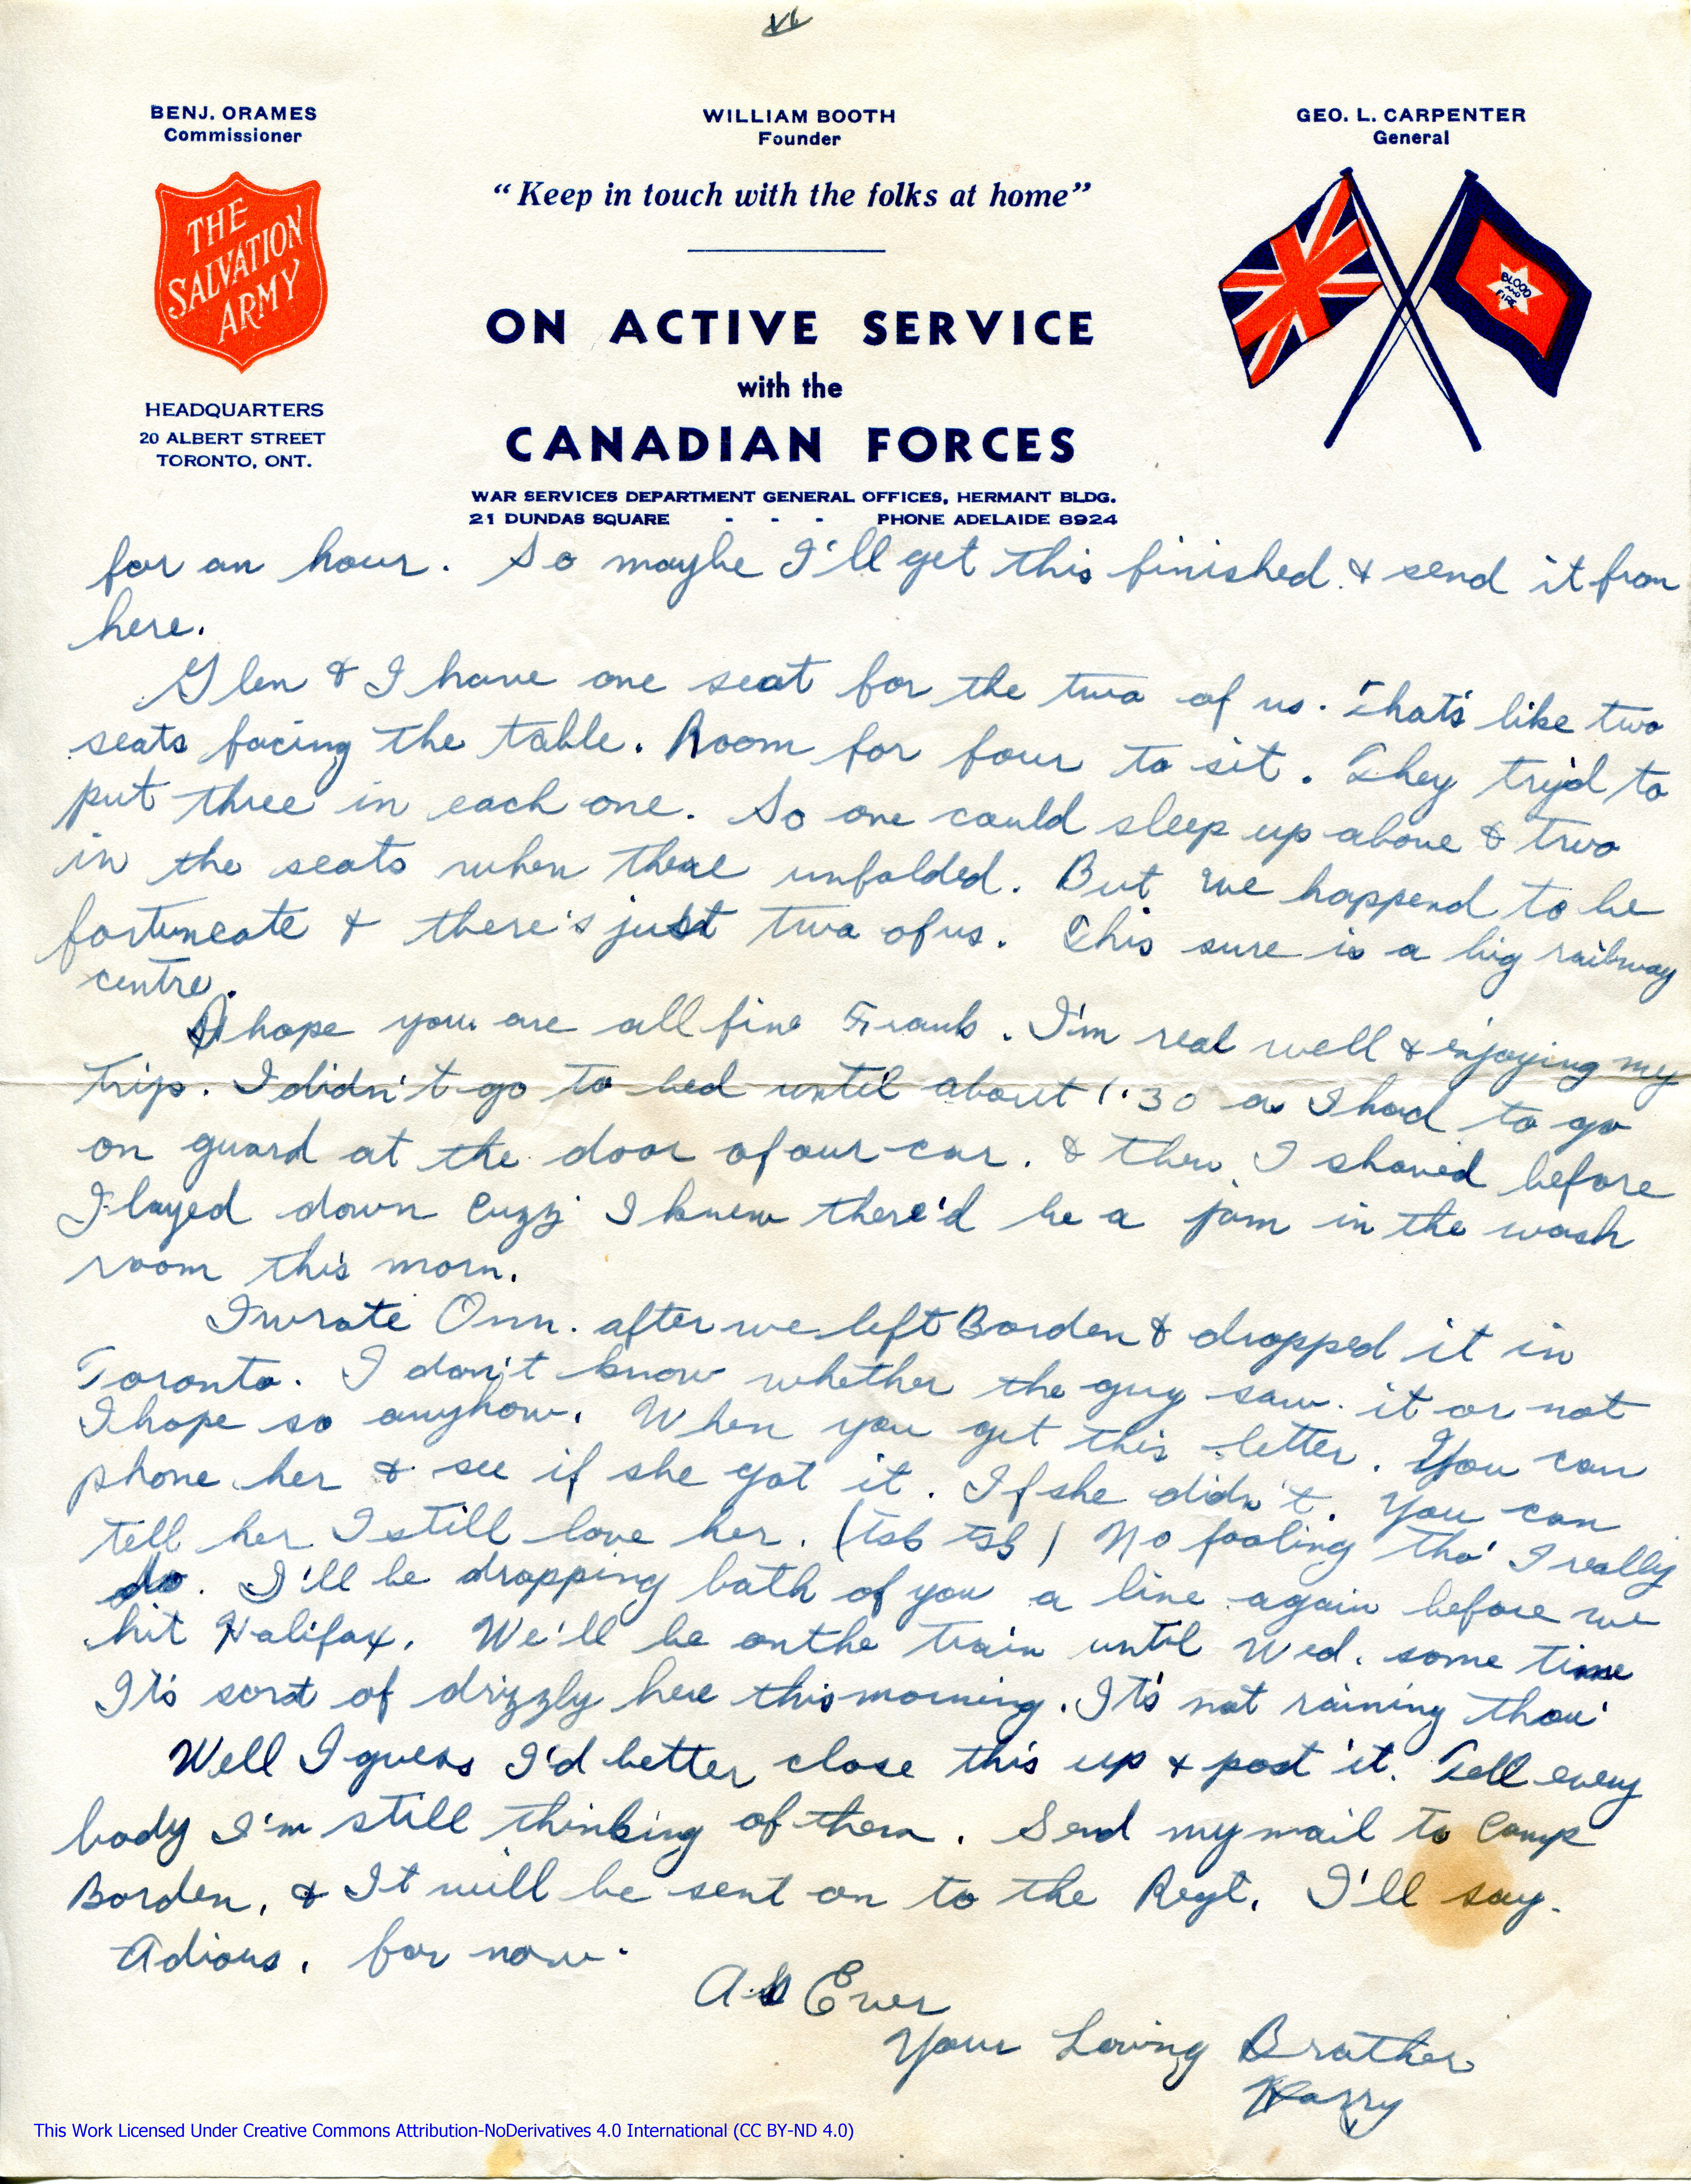 VL
BENJ. ORAMES
Commissioner
THE
SALVATION
ARMY
HEADQUARTERS
20 ALBERT STREET
TORONTO, ONT.
WILLIAM BOOTH
Founder
"Keep in touch with the folks at home"
ON ACTIVE SERVICE
with the
CANADIAN FORCES
WAR SERVICES DEPARTMENT GENERAL OFFICES, HERMANT BLDG.
21 DUNDAS SQUARE - - - PHONE ADELAIDE 8924
GEO. L. CARPENTER
General
BLOOD
AND
FIRE
for an hour. So maybe I'll get this finished & send it from
here.
Glen & I have one seat for the two of us. That's like two
seats facing the table. Room for four to sit. They try'd to
put three in each one. So one could sleep up above & two
in the seats when there unfolded. But we happend to be
fortuneate & there's just two of us. This sure is a big railway
centre.
I hope you are all fine Frank. I'm real well & enjoying my
trip. I didn't go to bed until about 1:30 as I had to go
on guard at the door of our car. & then I shaved before
I layed down cuzz I knew there'd be a jam in the wash
room this morn.
I wrote Onn. after we left Borden & dropped it in
Toronto. I don't know whether the guy saw it or not
I hope so anyhow. When you get this letter. You can
phone her & see if she got it. If she didn't. You can
tell her I still love her. (tsk tsk) No fooling tho' I really
do. I'll be dropping both of you a line again before we
hit Halifax. We'll be on the train until Wed. some time
It's sort of drizzly here this morning. It's not raining thou'
Well I guess I'd better close this up & post it. Tell every
body I'm still thinking of them. Send my mail to Camp
Borden, & It will be sent on to the Regt. I'll say.
Adious, for now.
As Ever
Your Loving Brother
Harry
This Work Licensed Under Creative Commons Attribution-NoDerivatives 4.0 International (CC BY-ND 4.0)